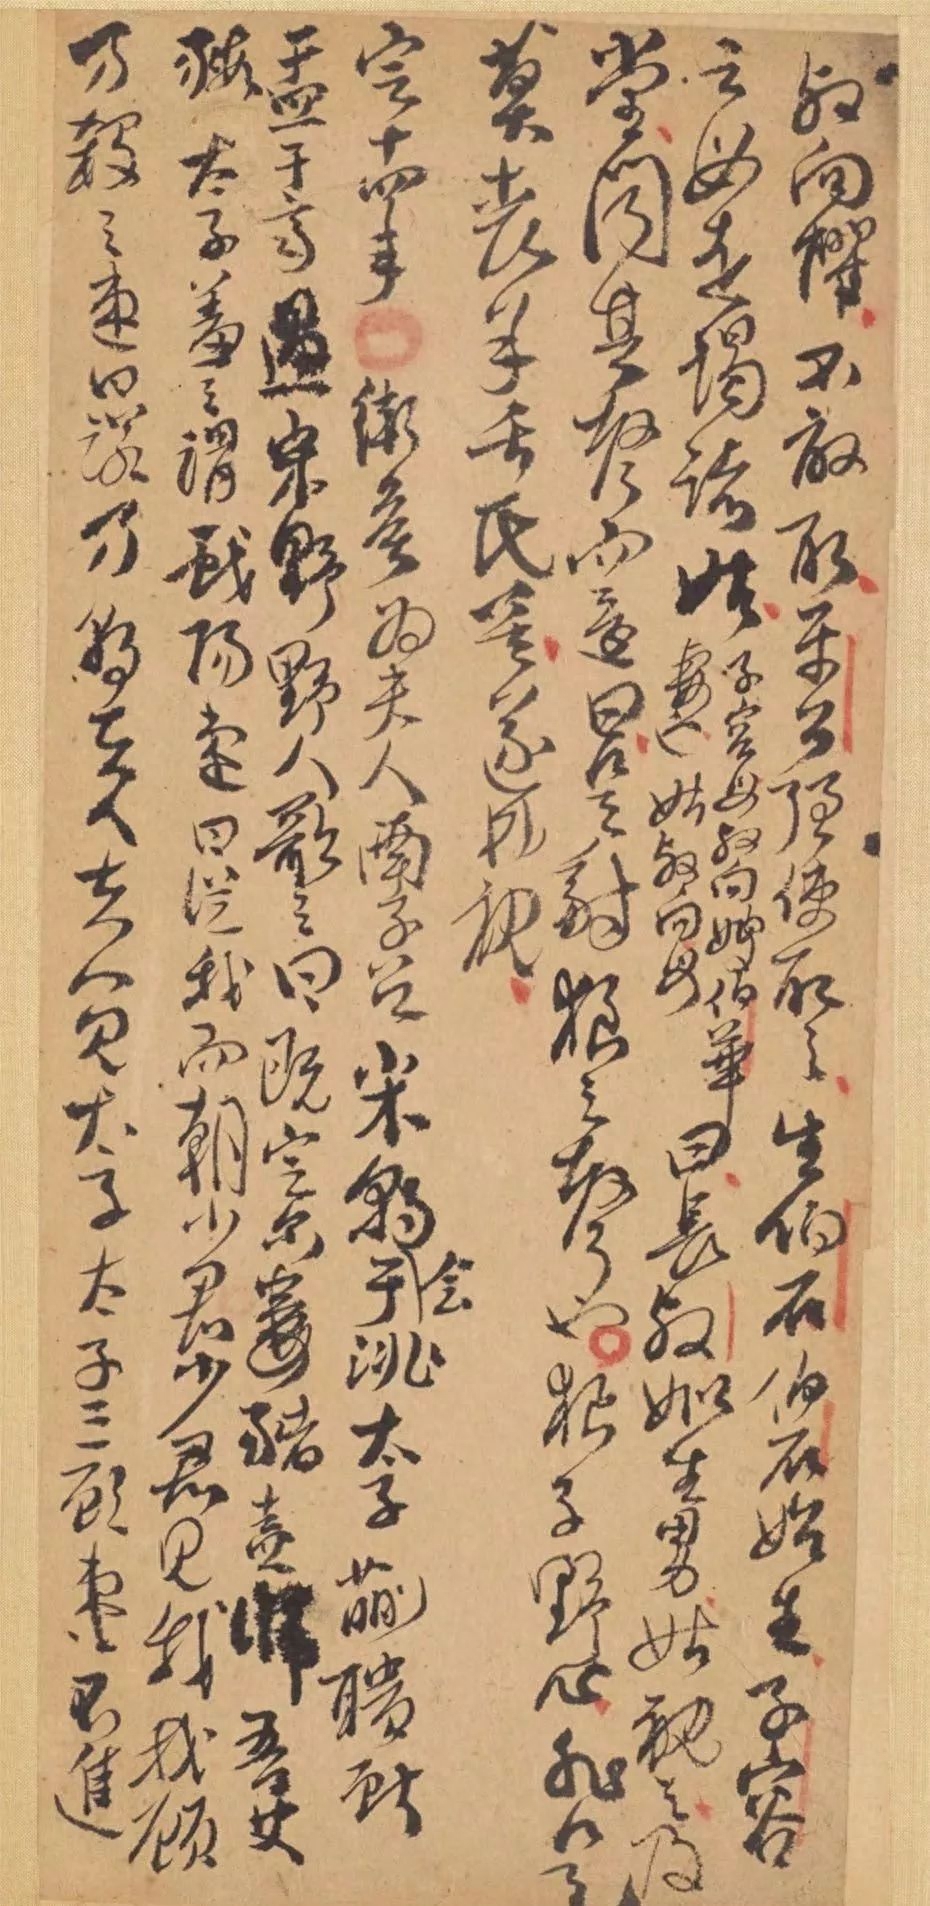 叔向懼不敢取平公強使取之生伯石伯石始生子容
之母走謁諸姑
子容母叔向嫂伯華
妻也姑叔向母
曰長叔姒生男姑視之及
堂聞其聲而還曰是豺狼之聲也狼子野心非是
莫喪羊舌氏矣遂弗視
定十四年衛侯為夫人南子召宋朝会于洮太子蒯聵獻
盂于齊過宋野野人歌之曰既定尔婁豬盍歸吾艾
豭太子羞之謂戲陽速曰從我而朝少君少君見我我顧
乃殺之速曰諾乃朝夫人夫人見太子太子三顧速不進